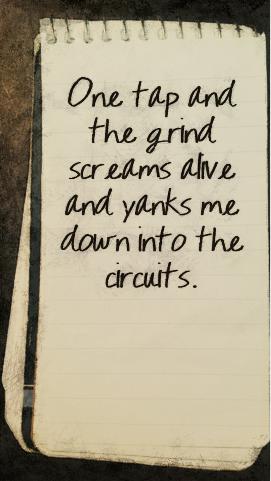 One tap and
the grind
screams alive
and yanks me
down into the
circuits.